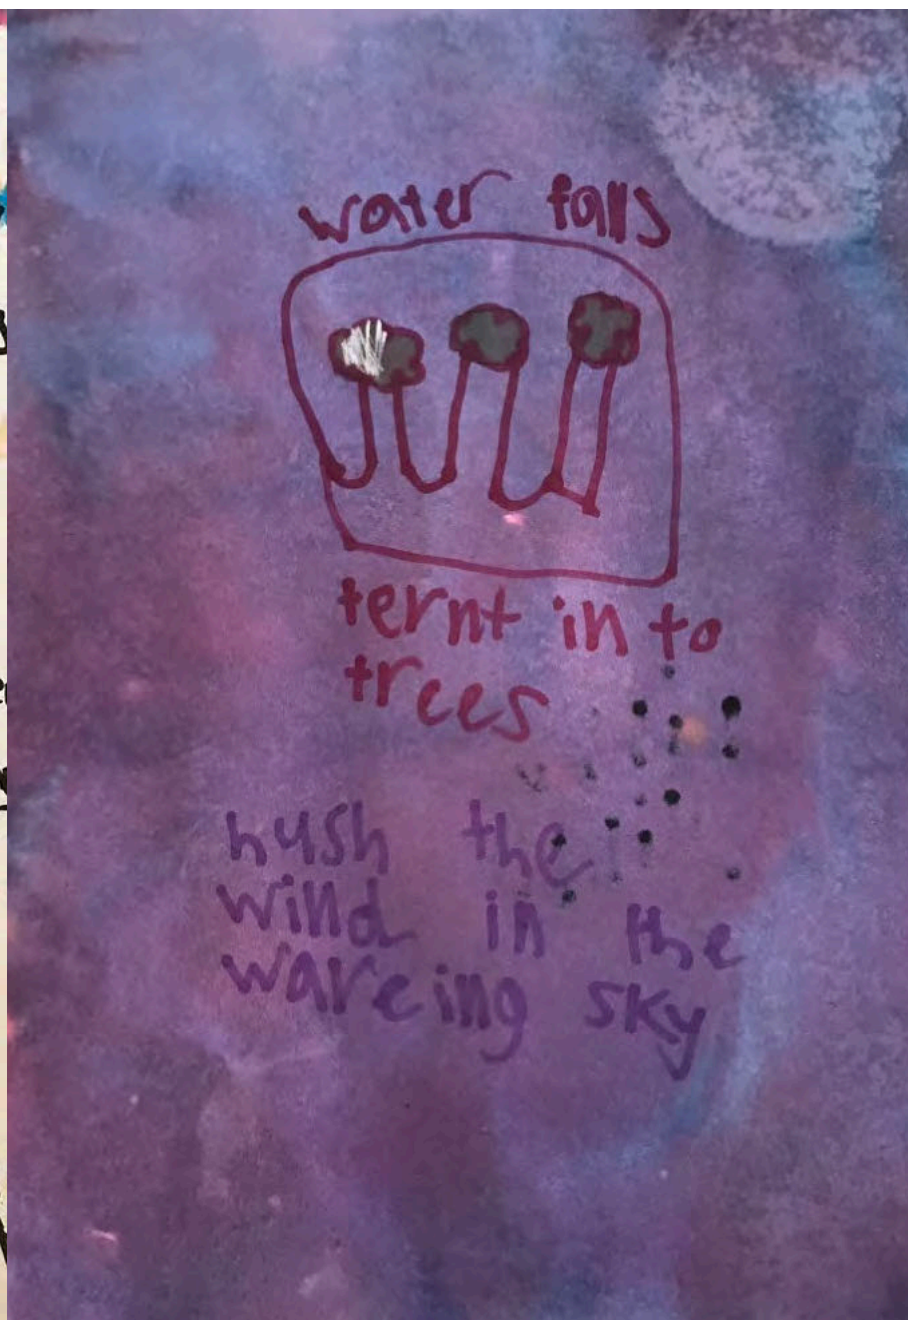 water falls
ternt in to
trees
hush the
wind in the
wareing sky